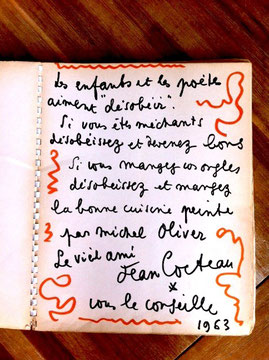 Les enfants et les poëtes
aiment "désobéir".
Si vous êtes méchants
désobéissez et devenez bons
Si vous mangez vos ongles
désobéissez et mangez
la bonne cuisine peinte
par michel Oliver
Le vieil ami
Jean Cocteau
*
vous le conseille
1963